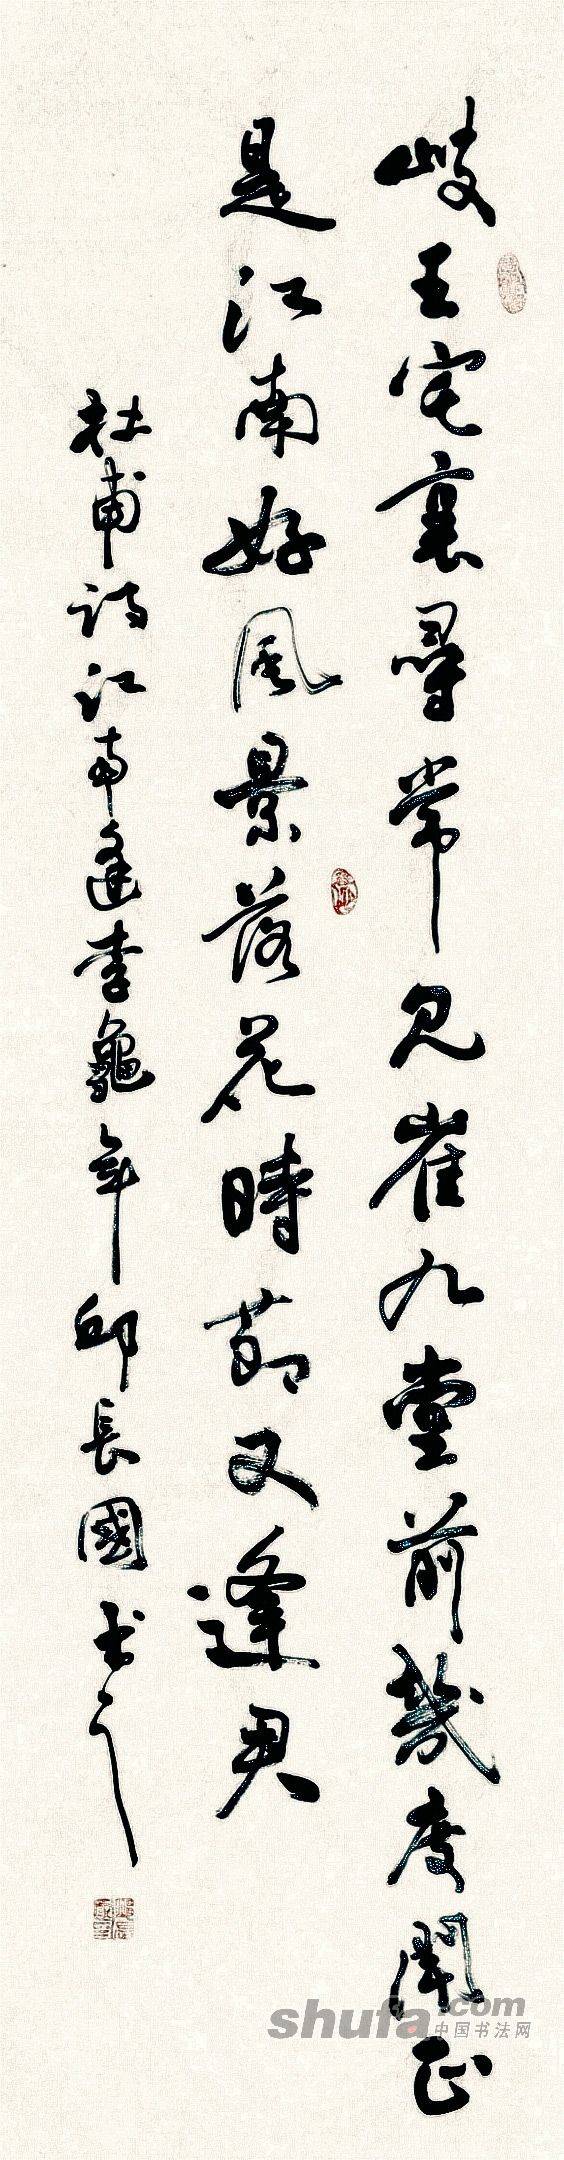 岐王宅裏尋常見崔九堂前幾度聞正
是江南好風景落花時節又逢君
杜甫詩江南逢李龜年邱長國书之
shufa.com
中国书法网